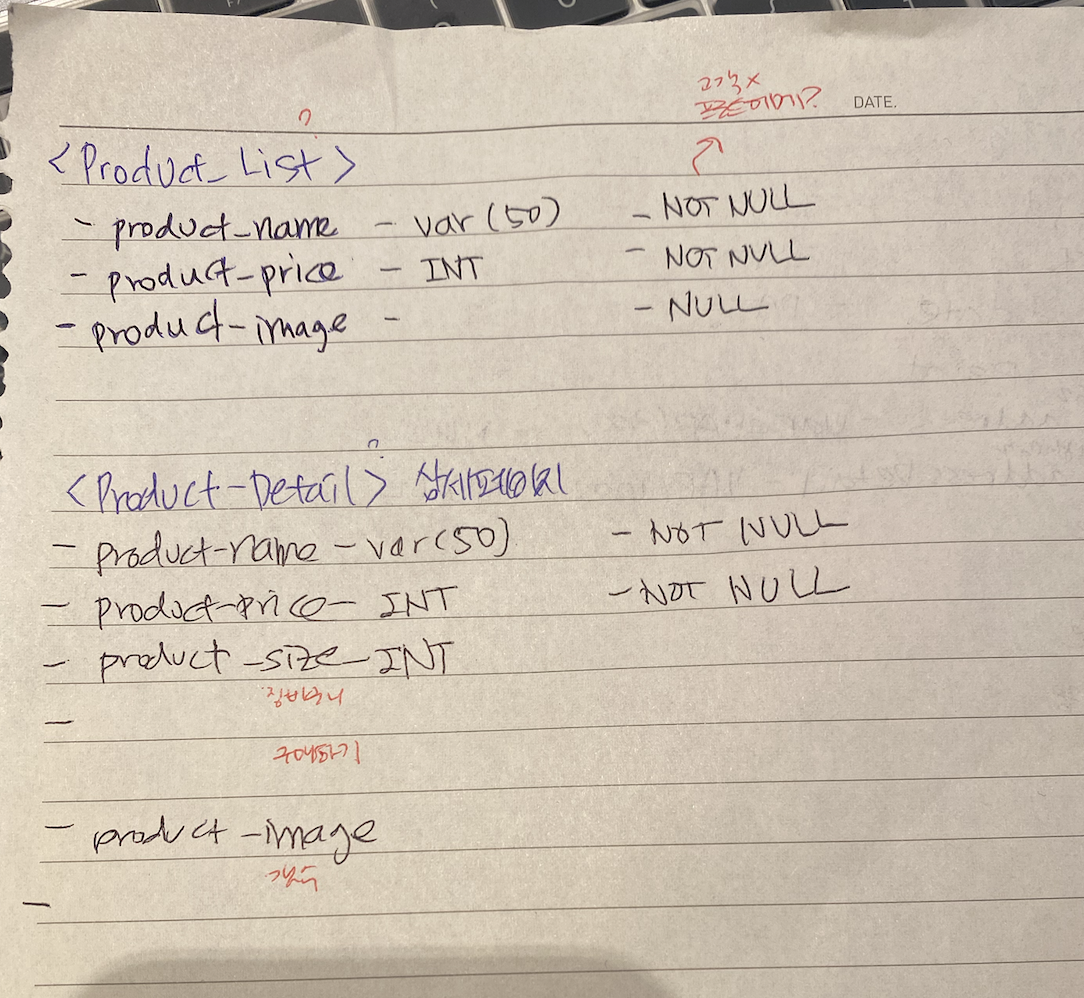 ?
이미지?
DATE.
<Product_List>
- product_name - var(50) - NOT NULL
- product-price - INT - NOT NULL
- product-image - - NULL
?
<Product-Detail> 상세페이지
- product-name - var(50) - NOT NULL
- product-price - INT - NOT NULL
- product-size - INT
장바구니
-
구매하기
- product-image
-